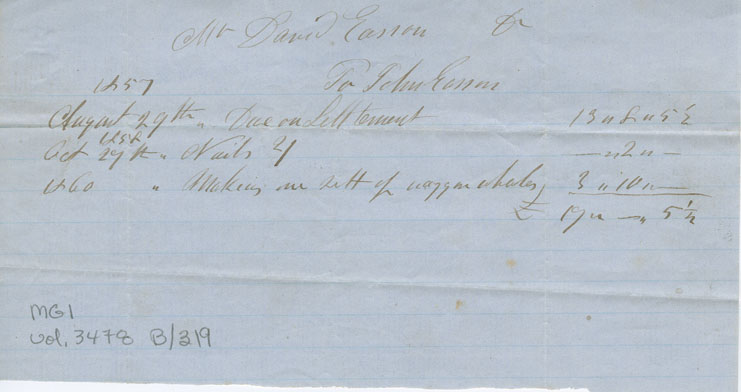 Mr David Easson Dr
1857 To John Esson
August 29th " Due on Setttement 13 " 8 " 5 ½
1858
Oct 29th " Nails 2/ — " 2 " —
1860 " Making one sett of waggon wheles 3 " 10 " —
£ 17 " — " 5 ½
MG1
Vol. 3478 B/319